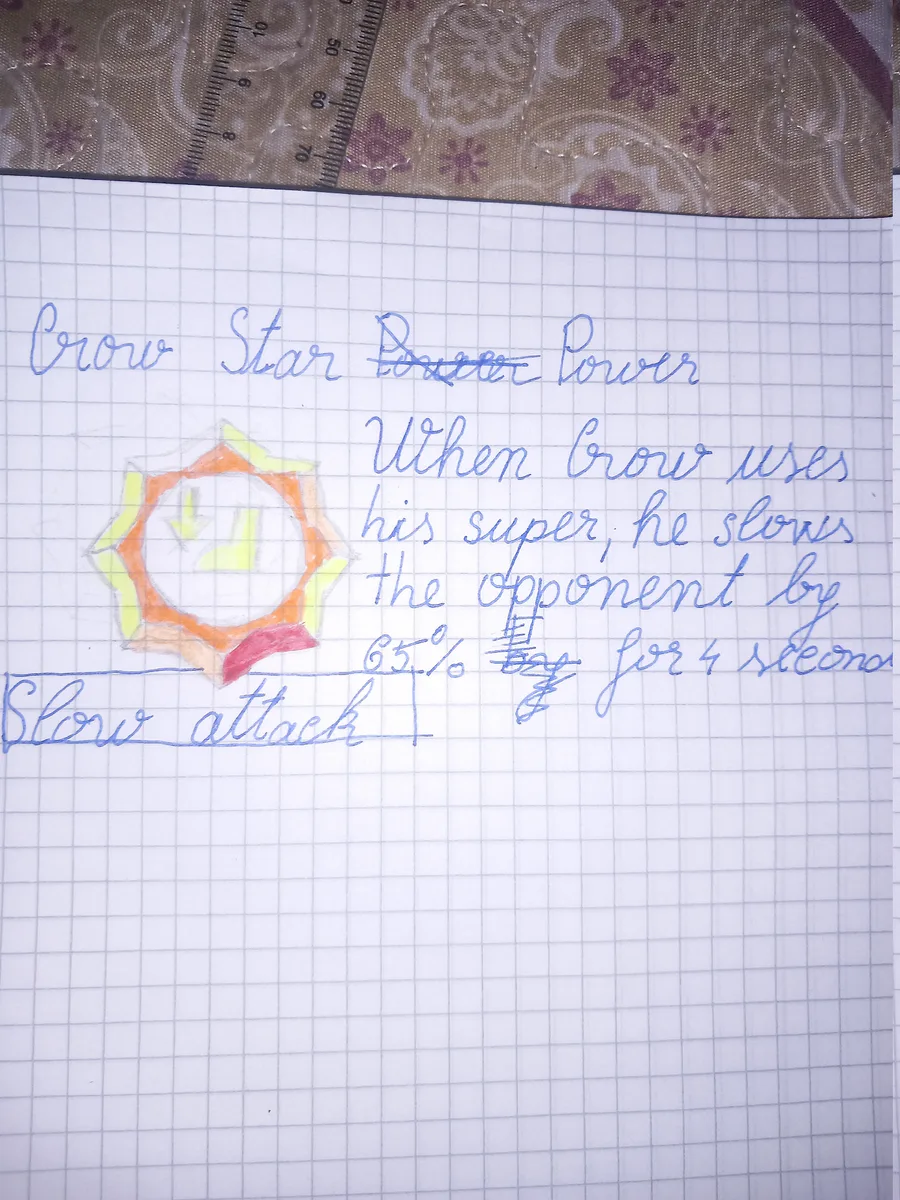 10
9
8
0
50
60
70
Crow Star Power Power
When Crow uses
his super, he slows
the opponent by
65% for 4 second
Slow attack